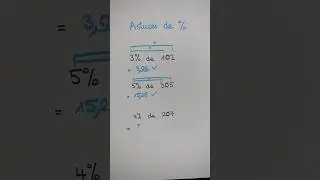 Astuces de %
3% de 102
= 3,06 ✓
5% de 305
= 15,25 ✓
4% de 207
= ?